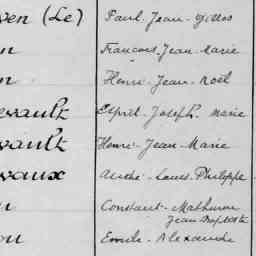 ven (Le) Paul-Jean-Gilles
n François-Jean-Marie
n Henri-Jean-Noël
evault Esprit-Joseph-Marie
vault Henri-Jean-Marie
vaux Louis-Philippe
n Constant-Mathurin
Jean-Baptiste
on Emile-Alexandre